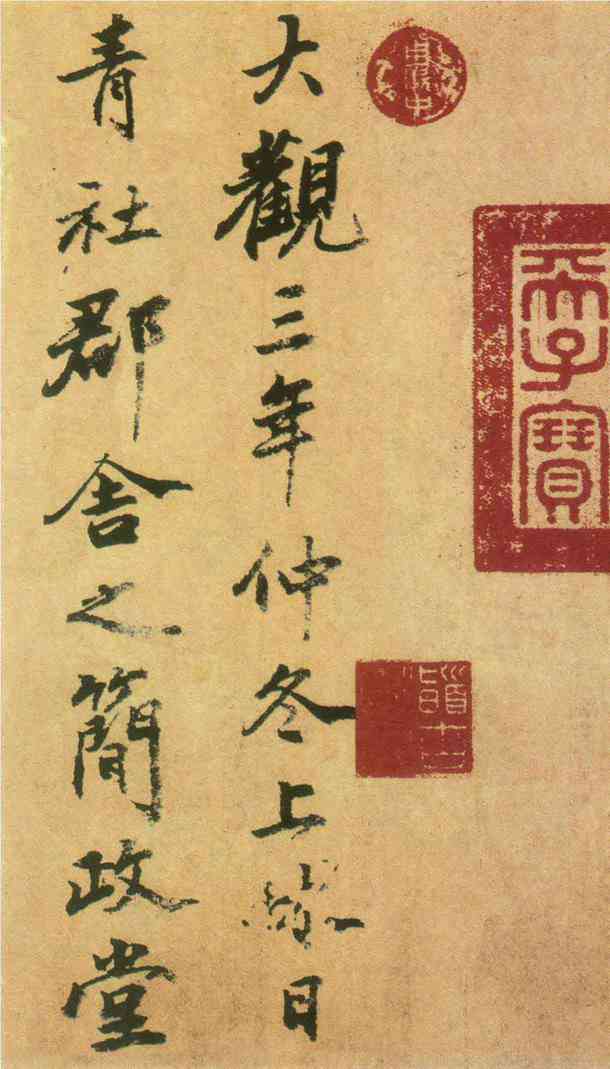 天子
寶
大觀三年仲冬上日
青社郡舍之簡政堂